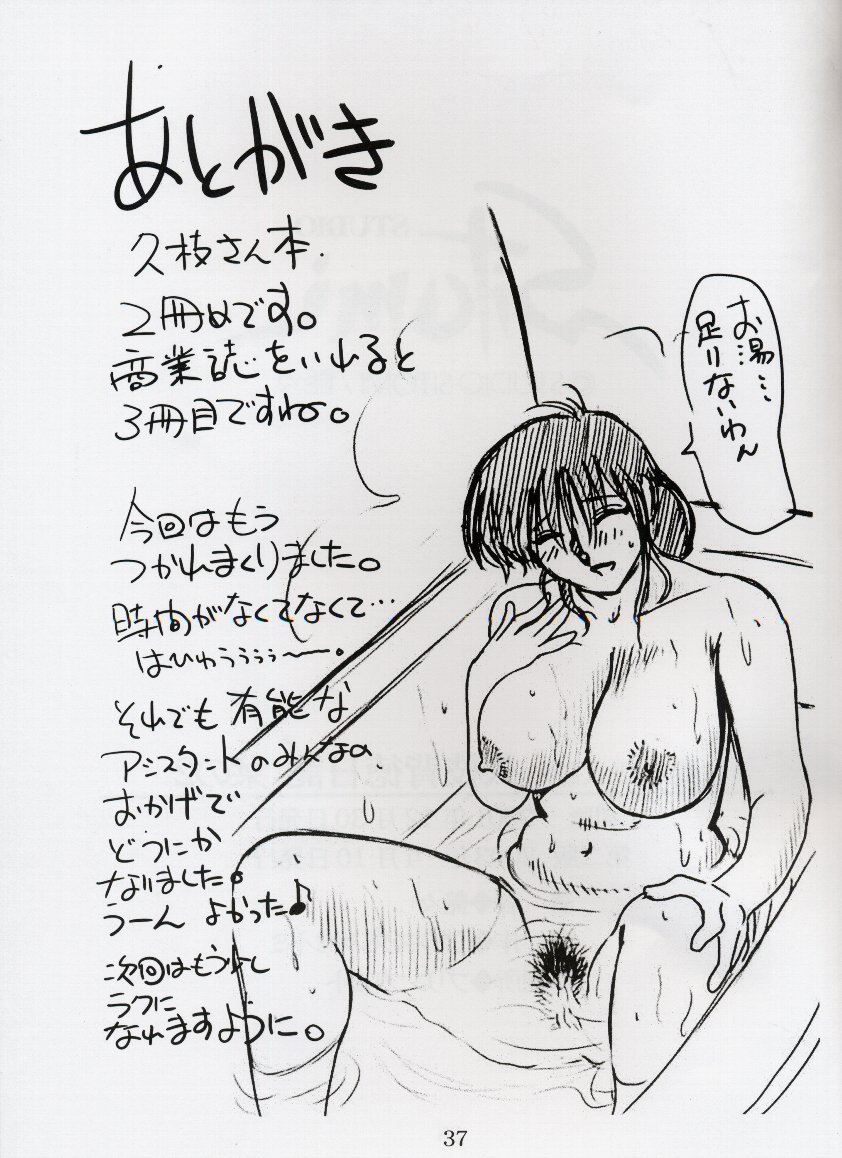 あとがき
久枝さん本.
2冊めです。
商業誌をいれると
3冊目ですね。
今回はもう
つかれまくりました。
時間がなくてなくて…
はひゅうぅぅぅ〜.
それでも有能な
アシスタントのみんなの
おかげで
どうにか
なりました。
うーん よかった♪
次回はもう少し
ラクに
なれますように。
お湯…
足りないわん
37